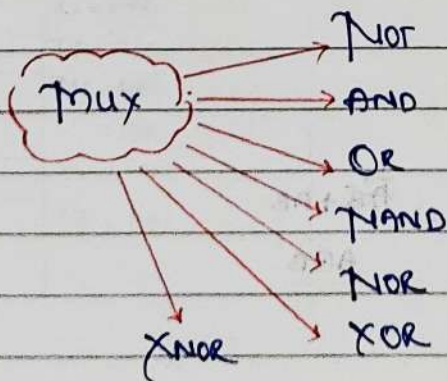 MUX
NOT
AND
OR
NAND
NOR
XOR
XNOR